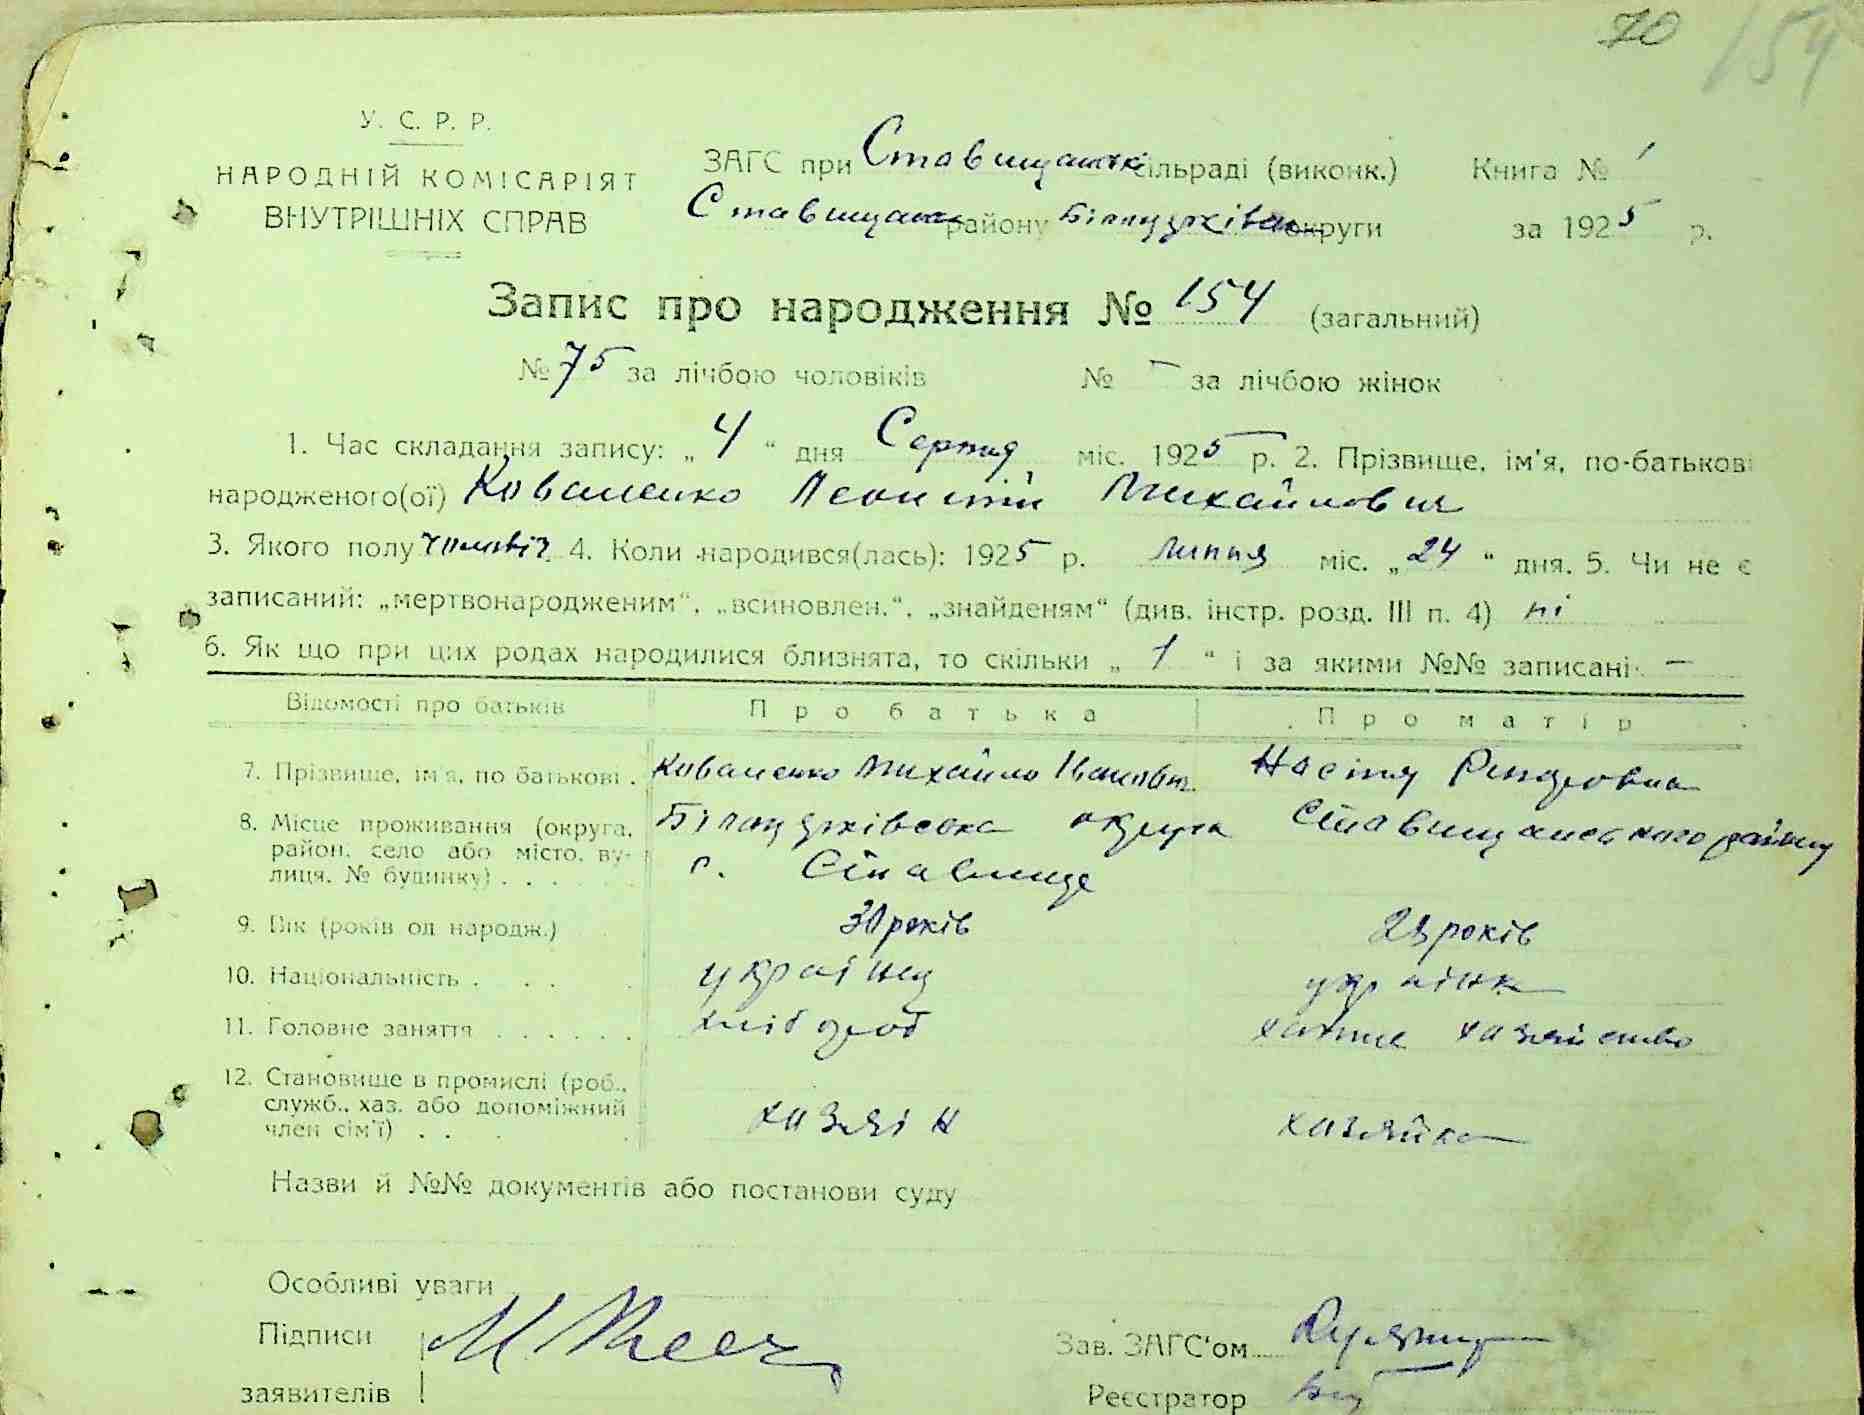 70 154
У. С. Р. Р.
НАРОДНІЙ КОМІСАРІЯТ
ВНУТРІШНІХ СПРАВ
ЗАГС при Ставищанській сільраді (виконк.) Книга № 1
Ставищанськ району Білоцерківськ округи за 1925 р.
Запис про народження № 154 (загальний)
№ 75 за лічбою чоловіків № – за лічбою жінок
1. Час складання запису: „4“ дня Серпня міс. 1925 р. 2. Прізвище, ім'я, по-батькові
народженого(ої) Коваленко Леонтій Михайлович
3. Якого полу чоловіч. 4. Коли народився(лась): 1925 р. липня міс. „24“ дня. 5. Чи не є
записаний: „мертвонародженим“, „всиновлен.“, „знайденям“ (див. інстр. розд. III п. 4) ні
6. Як що при цих родах народилися близнята, то скільки „1“ і за якими №№ записані —
Відомості про батьків Про батька Про матір
7. Прізвище, ім'я, по батькові . Коваленко Михайло Іванович Настя
8. Місце проживання (округа, район, село або місто, вулиця, № будинку) . . . . . Білоцерківська округа Ставищанського району
с. Ставище
9. Вік (років од народж.) 30 років 28 років
10. Національність . . . українец українк
11. Головне заняття . . . . . . хлібороб хатнє хазяйство
12. Становище в промислі (роб., служб., хаз. або допоміжний член сім'ї) . . . хазяїн хазяйка
Назви й №№ документів або постанови суду
Особливі уваги
Підписи
заявителів
Зав. ЗАГС'ом
Реєстратор